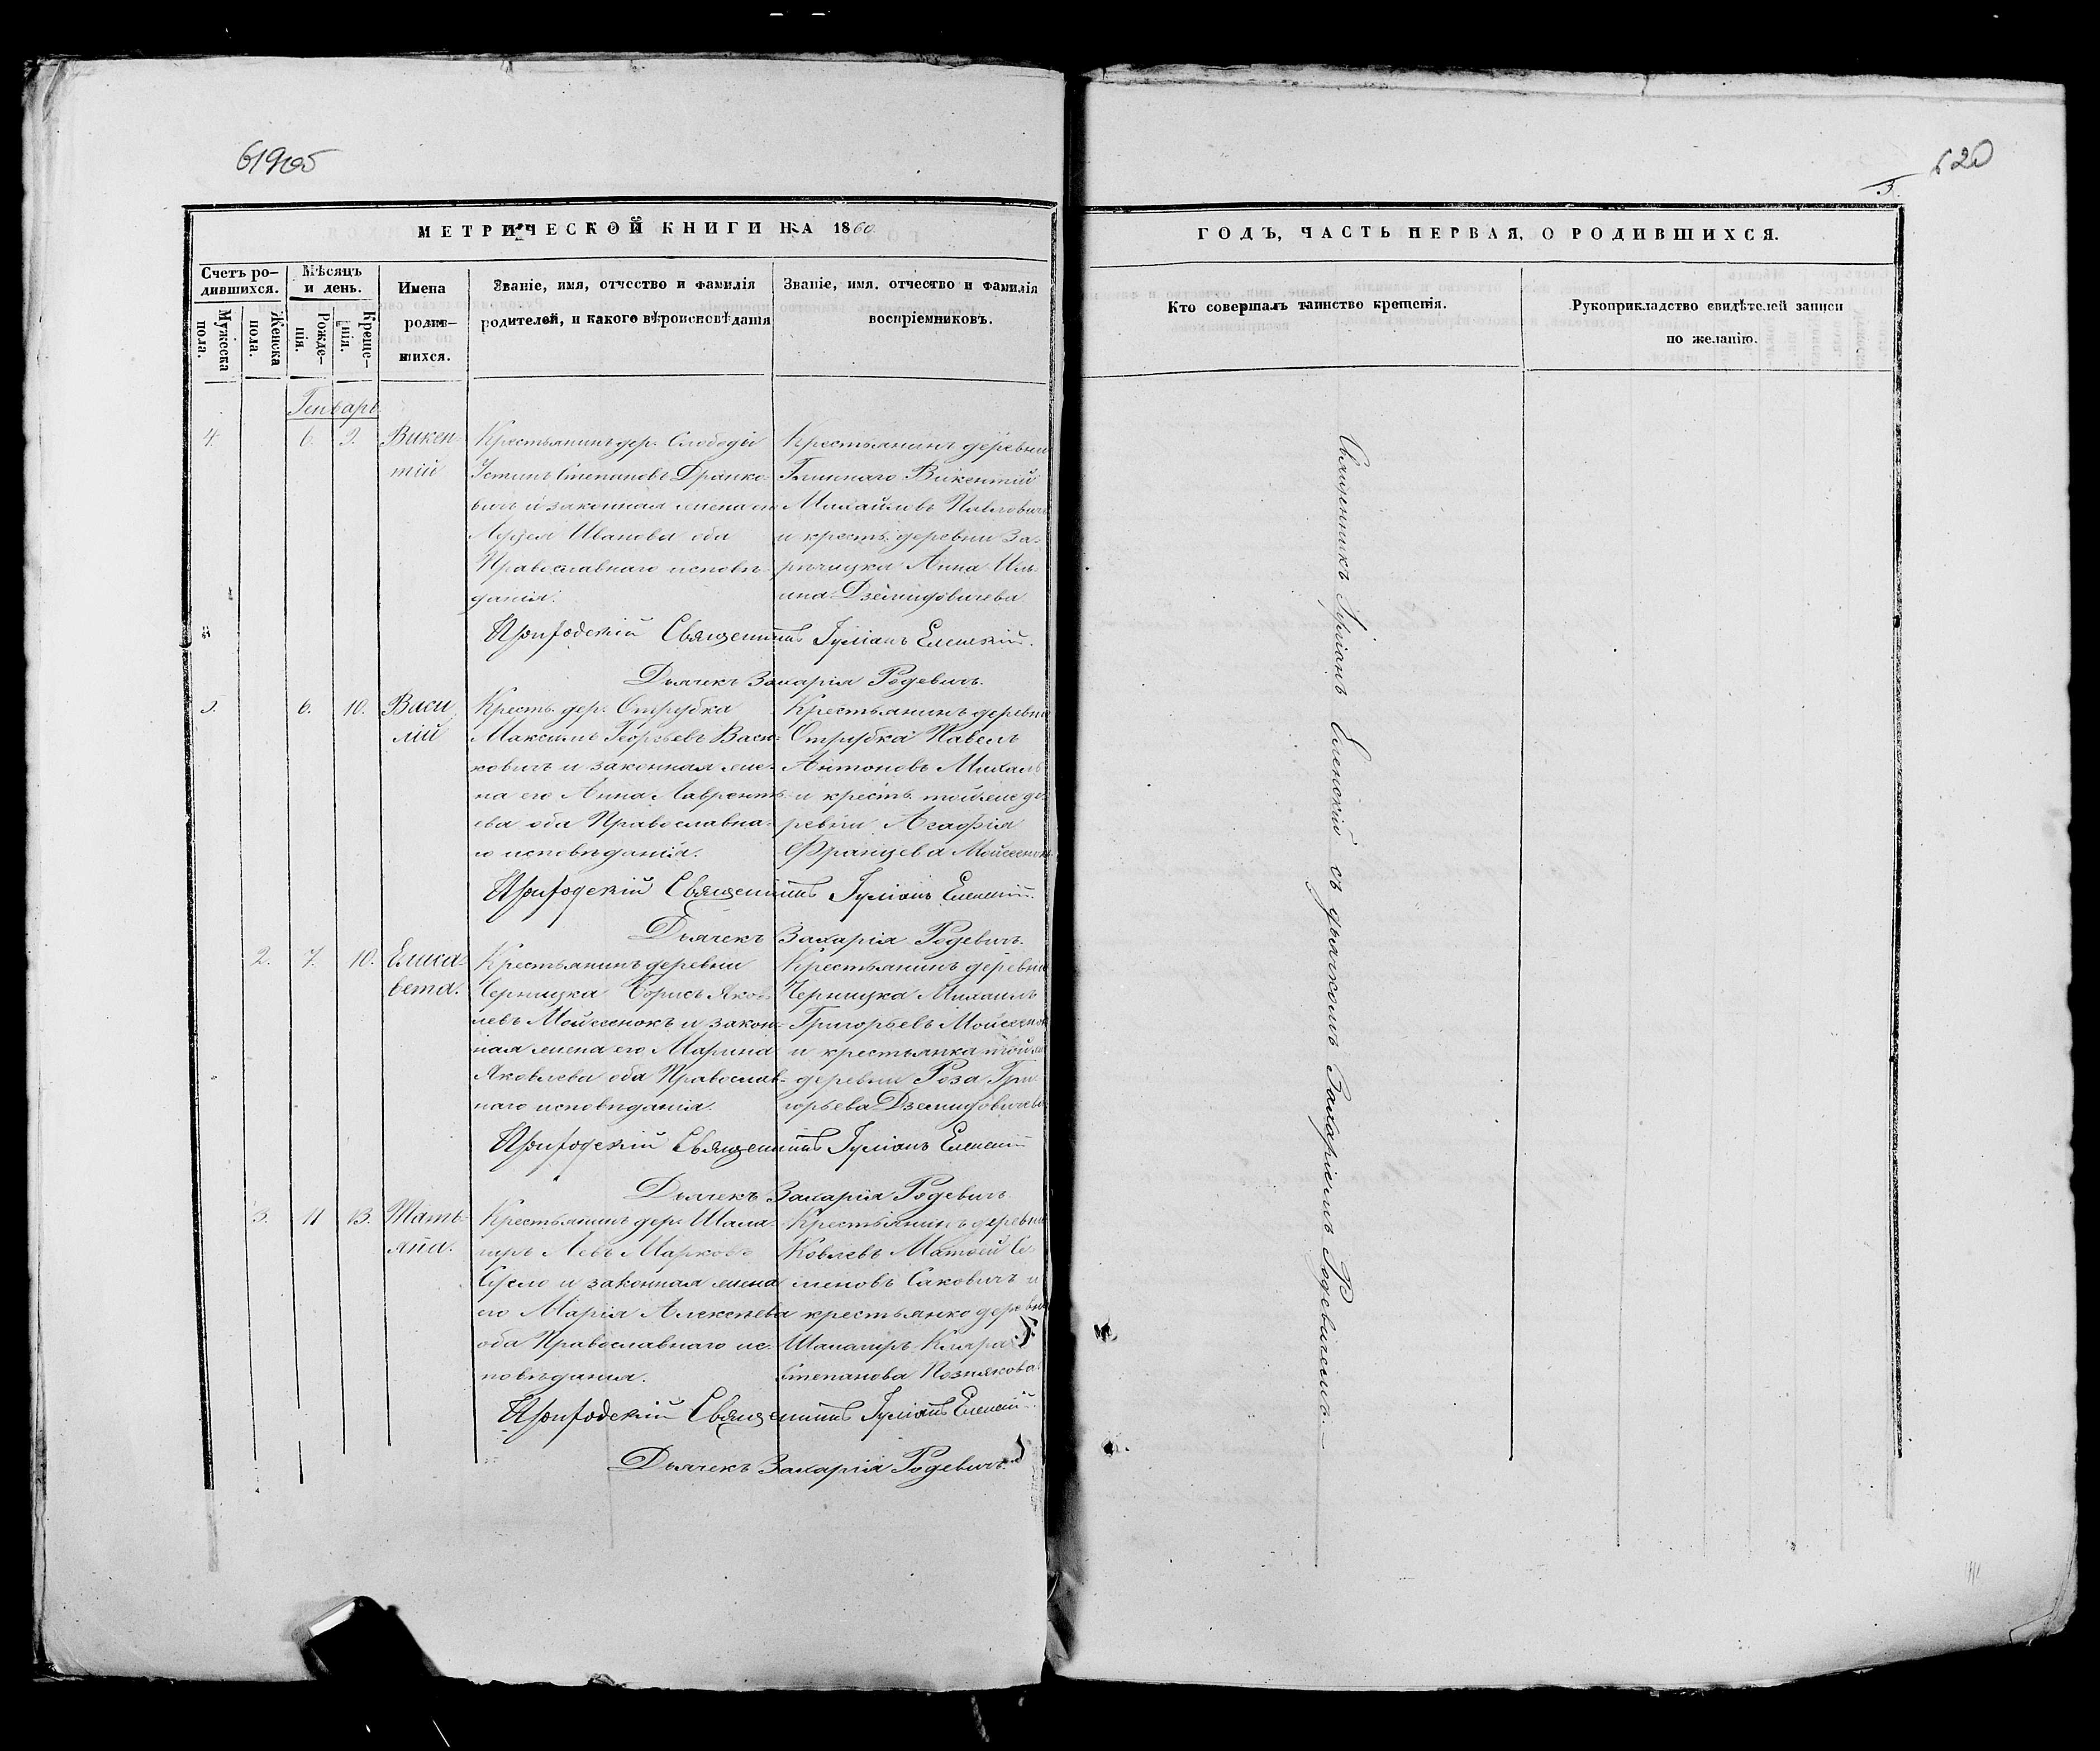 619об
620
3
МЕТРИЧЕСКОЙ КНИГИ НА 1860
ГОДЪ, ЧАСТЬ ПЕРВАЯ, О РОДИВШИХСЯ.
Счетъ ро-
дившихся.
Мужеска
пола.
Женска
пола.
Мѣсяцъ
и день.
Рожде-
нія.
Креще-
нія.
Имена
родив-
шихся.
Званіе, имя, отчество и фамилія
родителей, и какого вѣроисповѣданія
Званіе, имя, отчество и фамилія
воспріемниковъ.
Кто совершалъ таинство крещенія.
Рукоприкладство свидѣтелей записи
по желанію.
Генварь
4. 6. 9. Викен-
тій
Крестьянинъ дер. Слободы
Устинъ Степановъ Дранко-
вичъ и законная жена его
Ивановa оба
Православнаго исповѣ-
данія.
Крестьянинъ деревни
Викентій
Михайловъ Павловичъ
и крестъ. деревни За-
рѣчицка Анна Иль-
ина Дземидовичева
Приходскій Священникъ Іуліанъ Еленскій.
Дьячекъ Захарія Родевичъ.
5. 6. 10. Васи
лій
Крестъ. дер. Отрубка
Максимъ Георгьевъ Вась-
ковичъ и законная же-
на его Анна Лаврентъ-
ева оба Православна-
го исповѣданія.
Крестьянинъ деревни
Отрубка Павелъ
Антоновъ Михаль
и крестъ. тойже де-
ревни Агафія
Францева Мойсеенок
Приходскій Священникъ Іуліанъ Еленскій.
Дьячекъ Захарія Родевичъ.
2. 7. 10. Елиса-
вета.
Крестьянинъ деревни
Черницка Борисъ Яков-
левъ Мойсеенокъ и закон-
ная жена его Марина
Яковлева оба Православ-
наго исповѣданія.
Крестьянинъ деревни
Черницка Михаилъ
Григорьевъ Мойсеенок
и крестьянка тойже
деревни Роза Гри
горьева Дземидовичева
Приходскій Священникъ Іуліанъ Еленскій
Дьячекъ Захарія Родевичъ
3. 11 13. Тать-
яна.
Крестьянинъ дер. Шала-
Левъ Марковъ
Сусло и законная жена
его Марія Алексѣева
оба Православнаго ис-
повѣданія.
Крестьянинъ деревни
Ковлевъ Матѳей Се-
меновъ Саковичъ и
крестьянка деревни
Клара
Степанова Познякова
Приходскій Священникъ Іуліанъ Еленскій.
Дьячекъ Захарія Родевичъ.
Священникъ Іуліанъ Еленскій съ дьячкомъ Захаріемъ Родевичемъ.